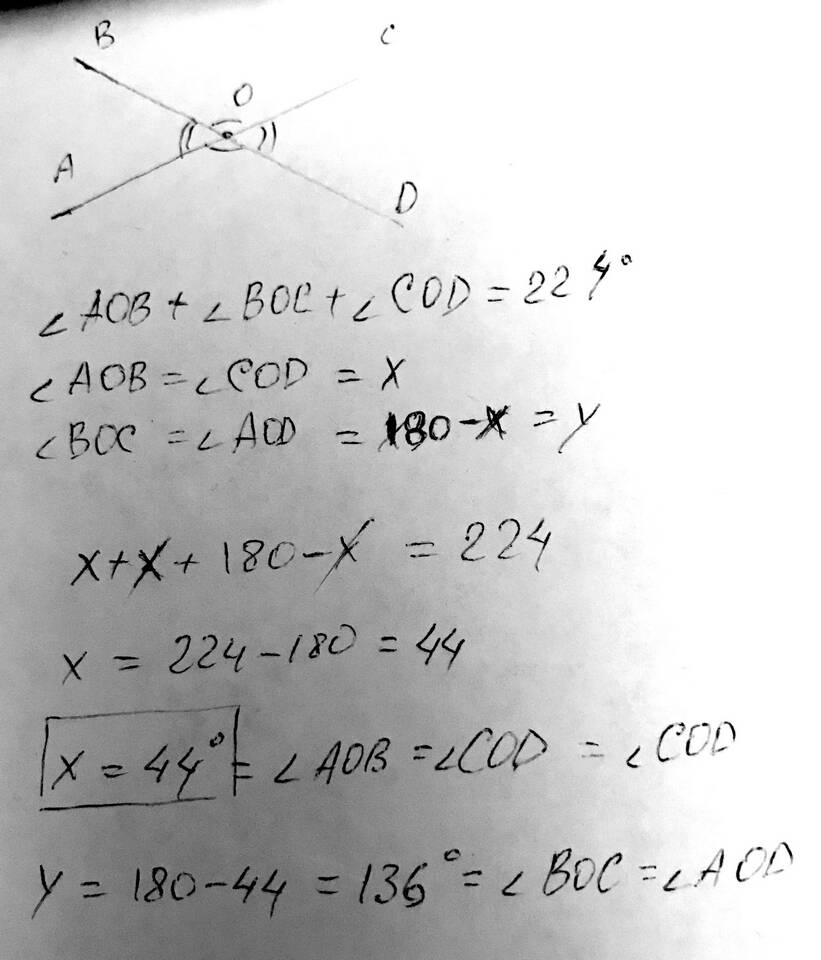 B C
O
A D
∠AOB + ∠BOC + ∠COD = 224°
∠AOB = ∠COD = x
∠BOC = ∠AOD = 180 - x = y
x + x + 180 - x = 224
x = 224 - 180 = 44
x = 44° = ∠AOB = ∠COD = ∠COD
y = 180 - 44 = 136° = ∠BOC = ∠AOD